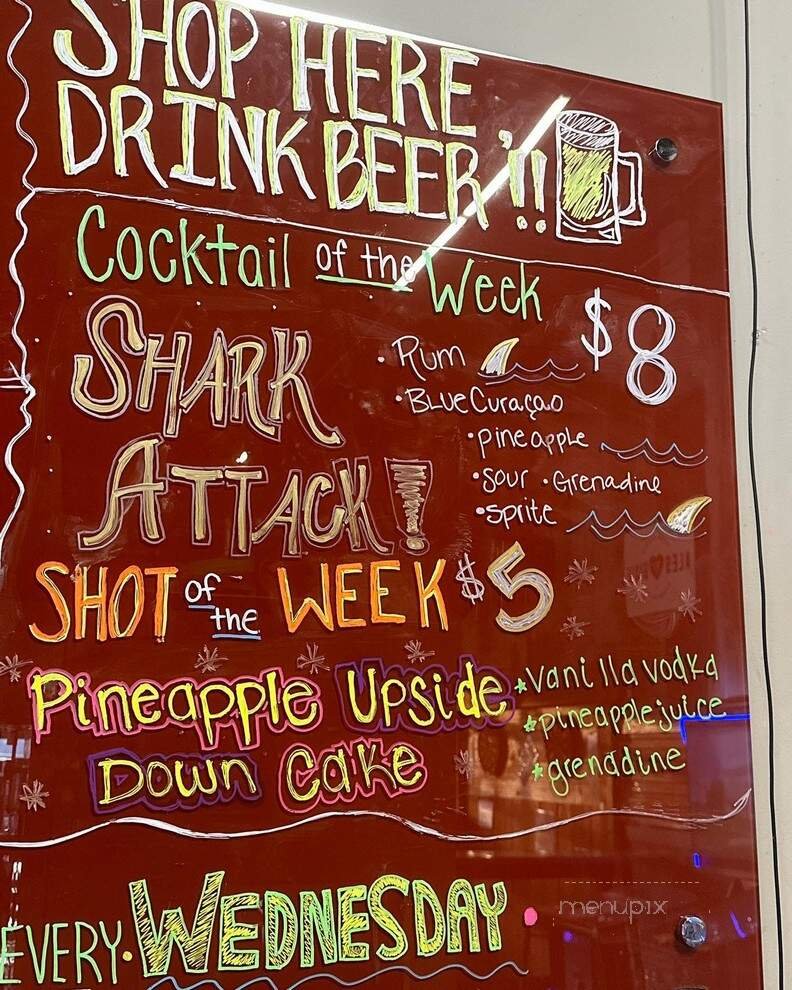 SHOP HERE
DRINK BEER'!!
Cocktail of the Week
SHARK
ATTACK!
$8
• Rum
• Blue Curaçao
• pineapple
• sour • Grenadine
• sprite
SHOT of the WEEK $5
Pineapple Upside
Down Cake
*vanilla vodka
*pineapple juice
*grenadine
EVERY • WEDNESDAY •
menupix